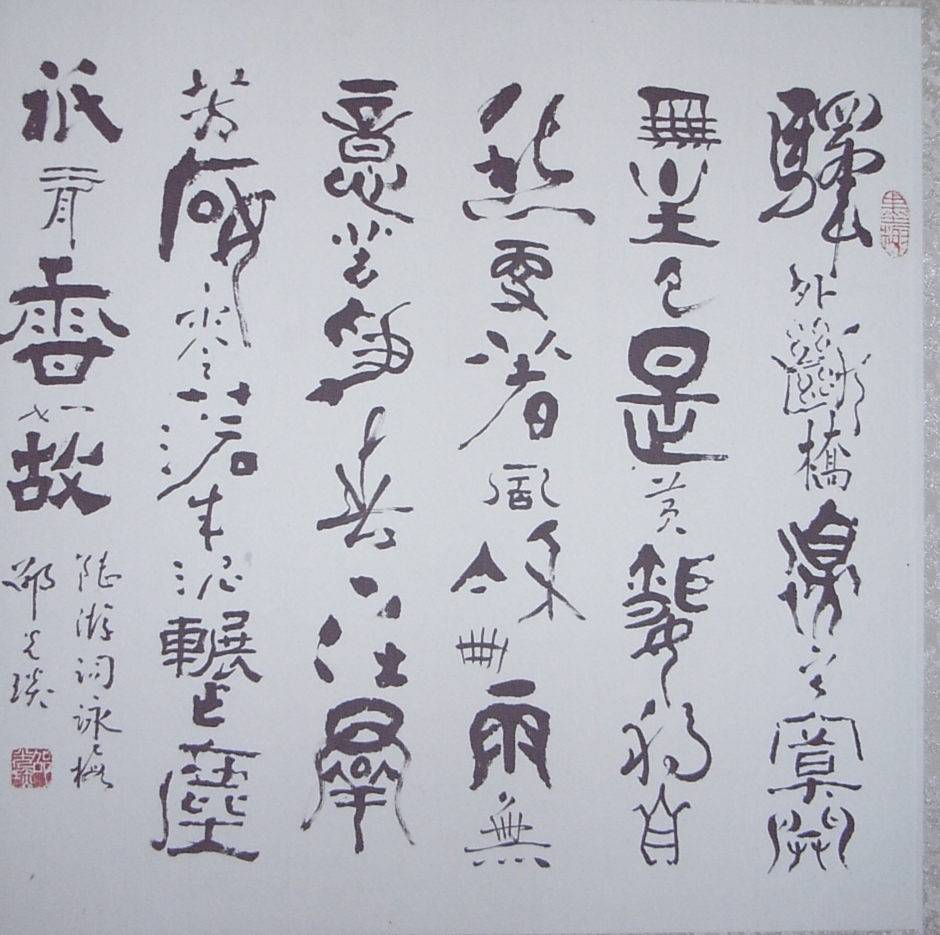 驛外斷橋邊寂寞開
無主已是黃昏獨自
愁更著風龢雨無
意苦爭春一任羣
芳妒零落成泥輾乍塵
祇有香如故
陸游詞詠梅